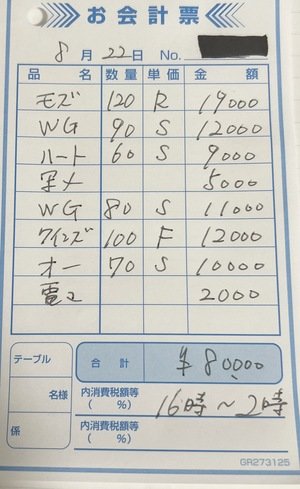 お会計票
8月22日 No.
品名 数量 単価 金額
モズ 120 R 19000
WG 90 S 12000
ハート 60 S 9000
写メ 5000
WG 80 S 11000
クインズ 100 F 12000
オー 70 S 10000
電マ 2000
テーブル 合計 ¥80000
名様 内消費税額等
( %) 16時～2時
係 内消費税額等
( %)
GR273125